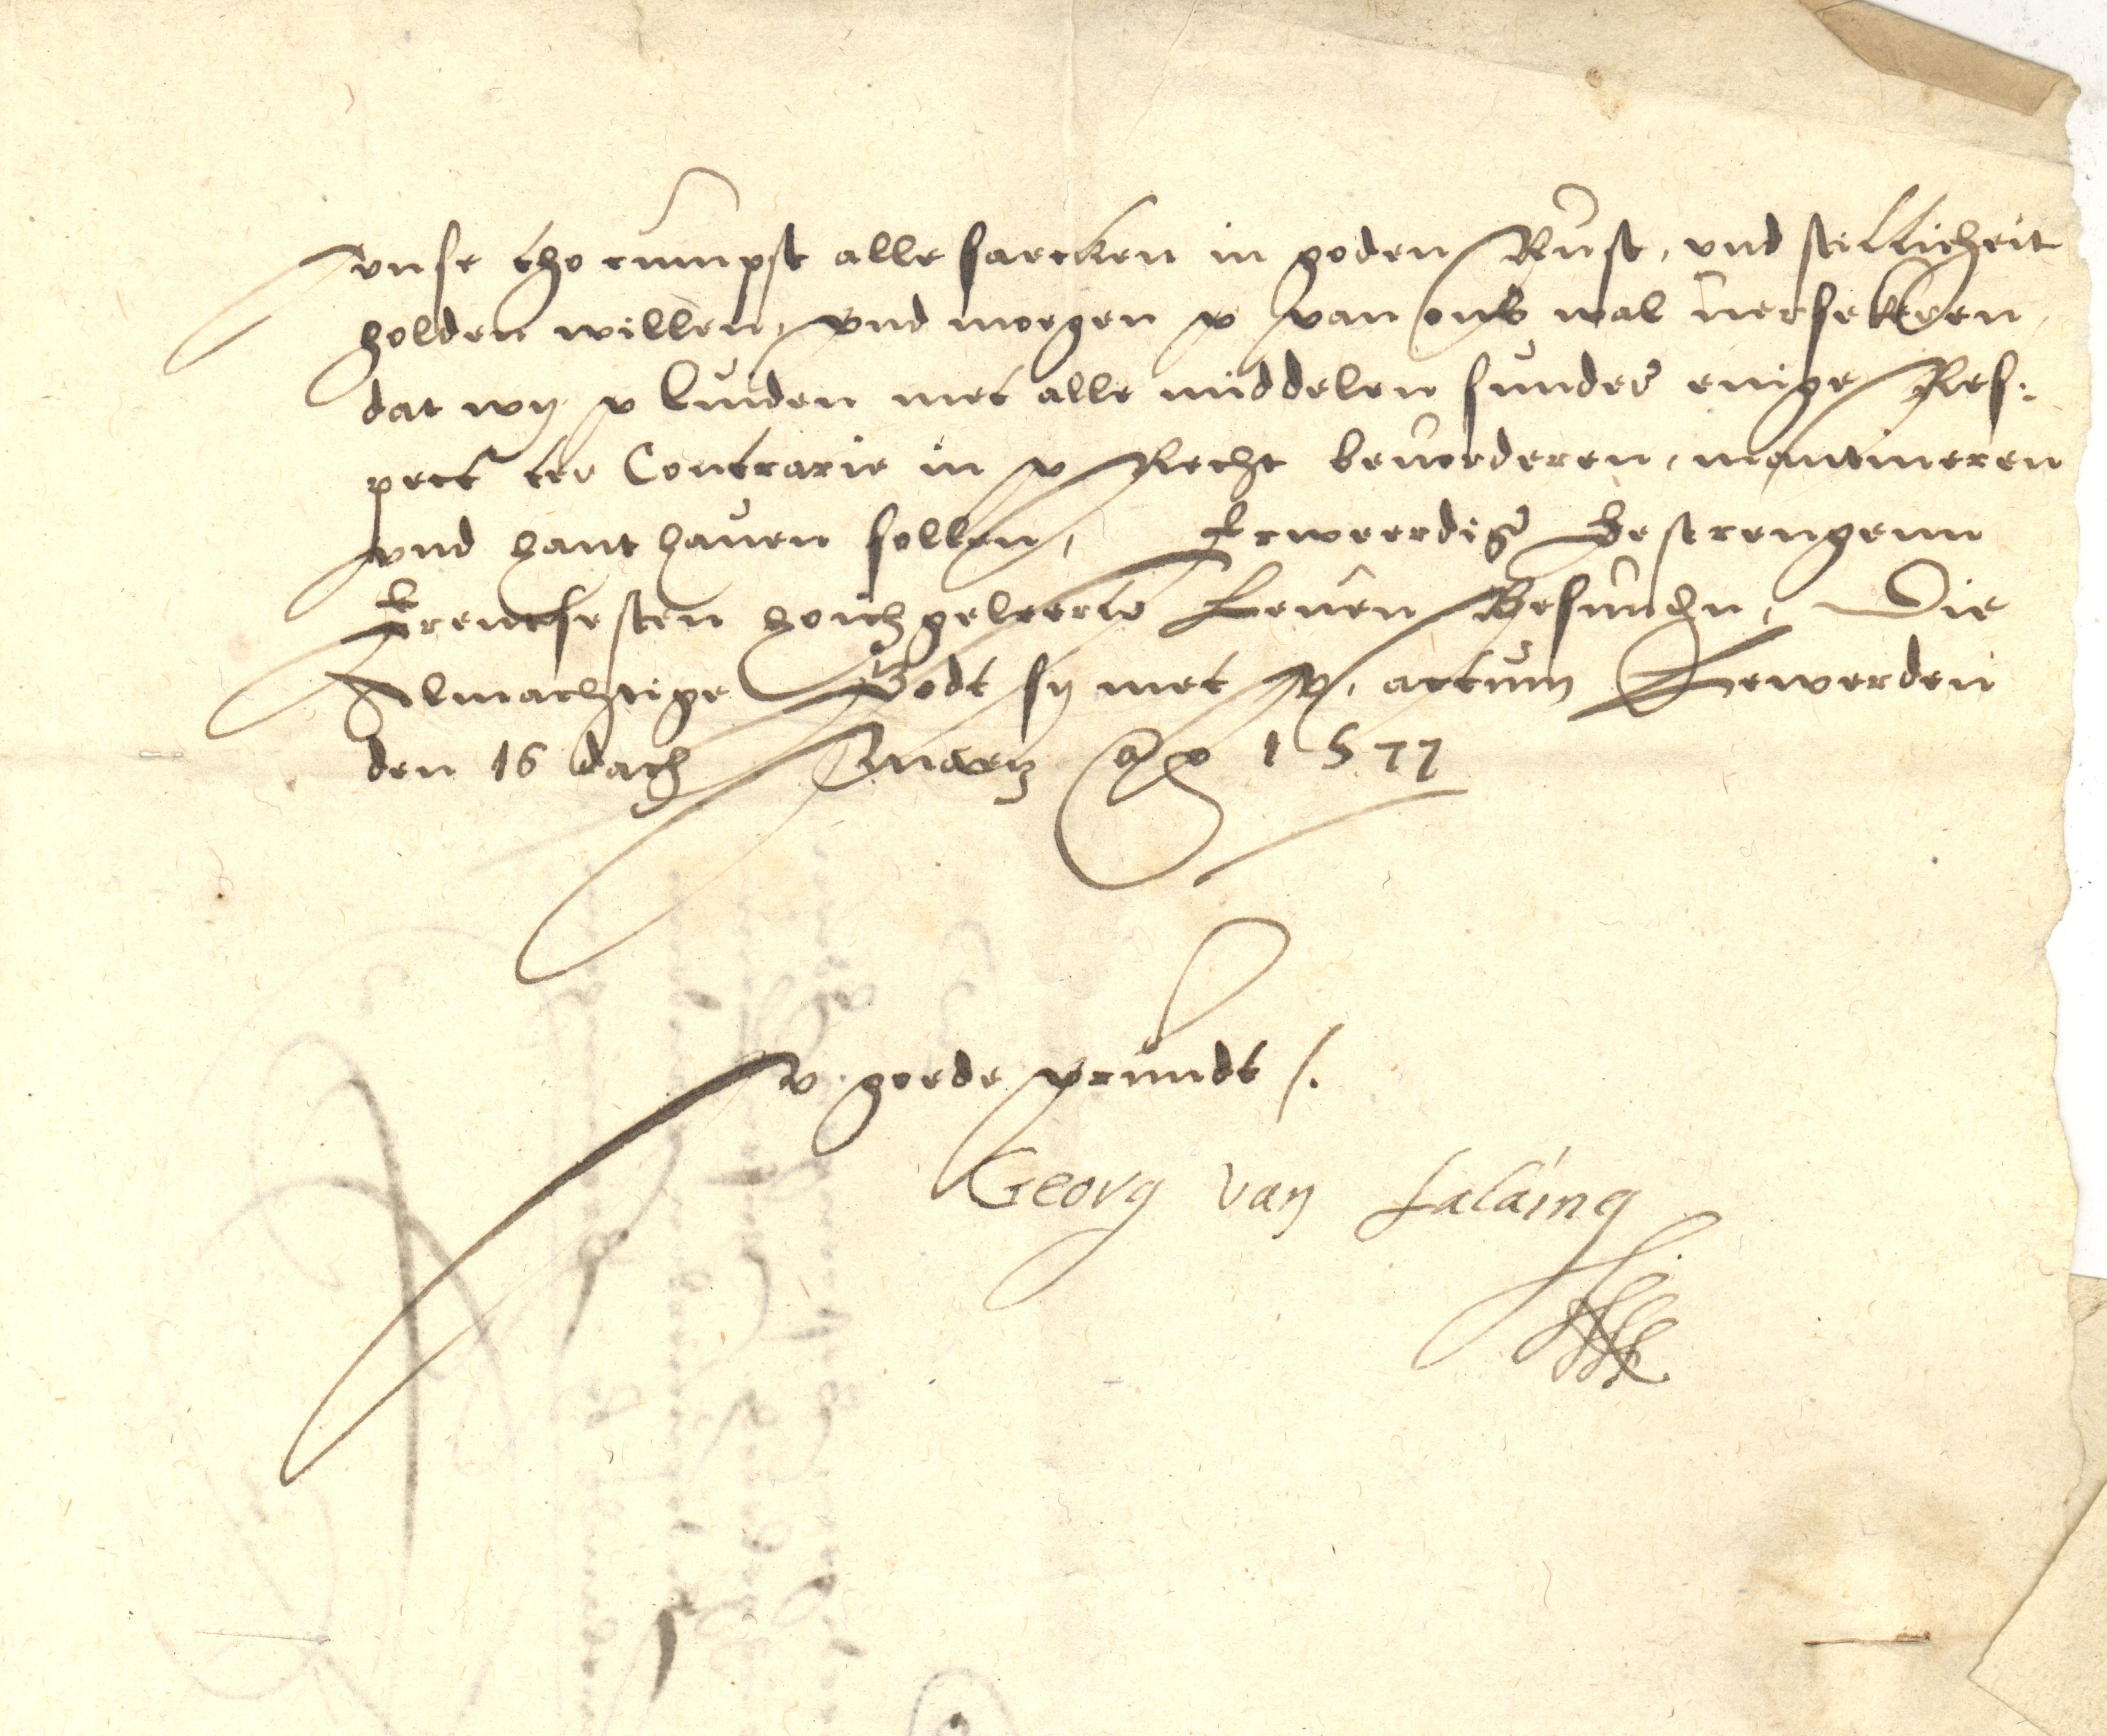 vnse tho cumpst alle saecken in goden Rust, vnd stillicheit
holden willen, vnd moegen v van ons wal uersekeren,
dat wy v luiden met alle middelen sunder enige Res:
pect ter Contrarie in v Recht beuorderen, mantineren
vnd hant hauen sollen, Erweerdig Gestrengenn
Erentfesten hoichgeleerte Leuen Besundn, Die
Almachtige Godt sy met v, actum Lewerden
den 16 dach Martz Ao 1577
v goede vrundt /.
Georg van Lalaing